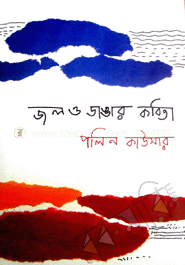 জল ও ডাঙার কবিতা
পলিন কাউসার